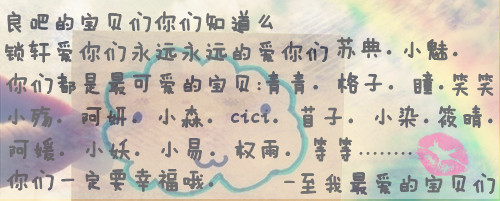 良吧的宝贝们你们知道么
锁轩爱你们永远永远的爱你们苏典.小魅.
你们都是最可爱的宝贝:青青.格子.瞳.笑笑
小殇.阿妍.小森.cici.苜子.小染.筱晴.
阿媛.小妖.小易.权雨.等等………
你们一定要幸福哦.  —至我最爱的宝贝们